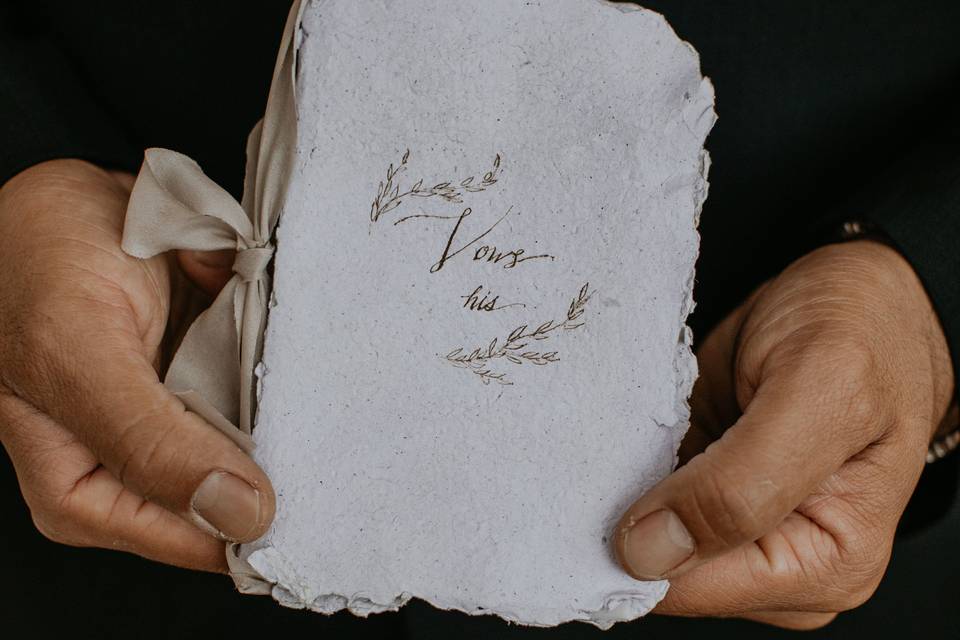 Vows
his